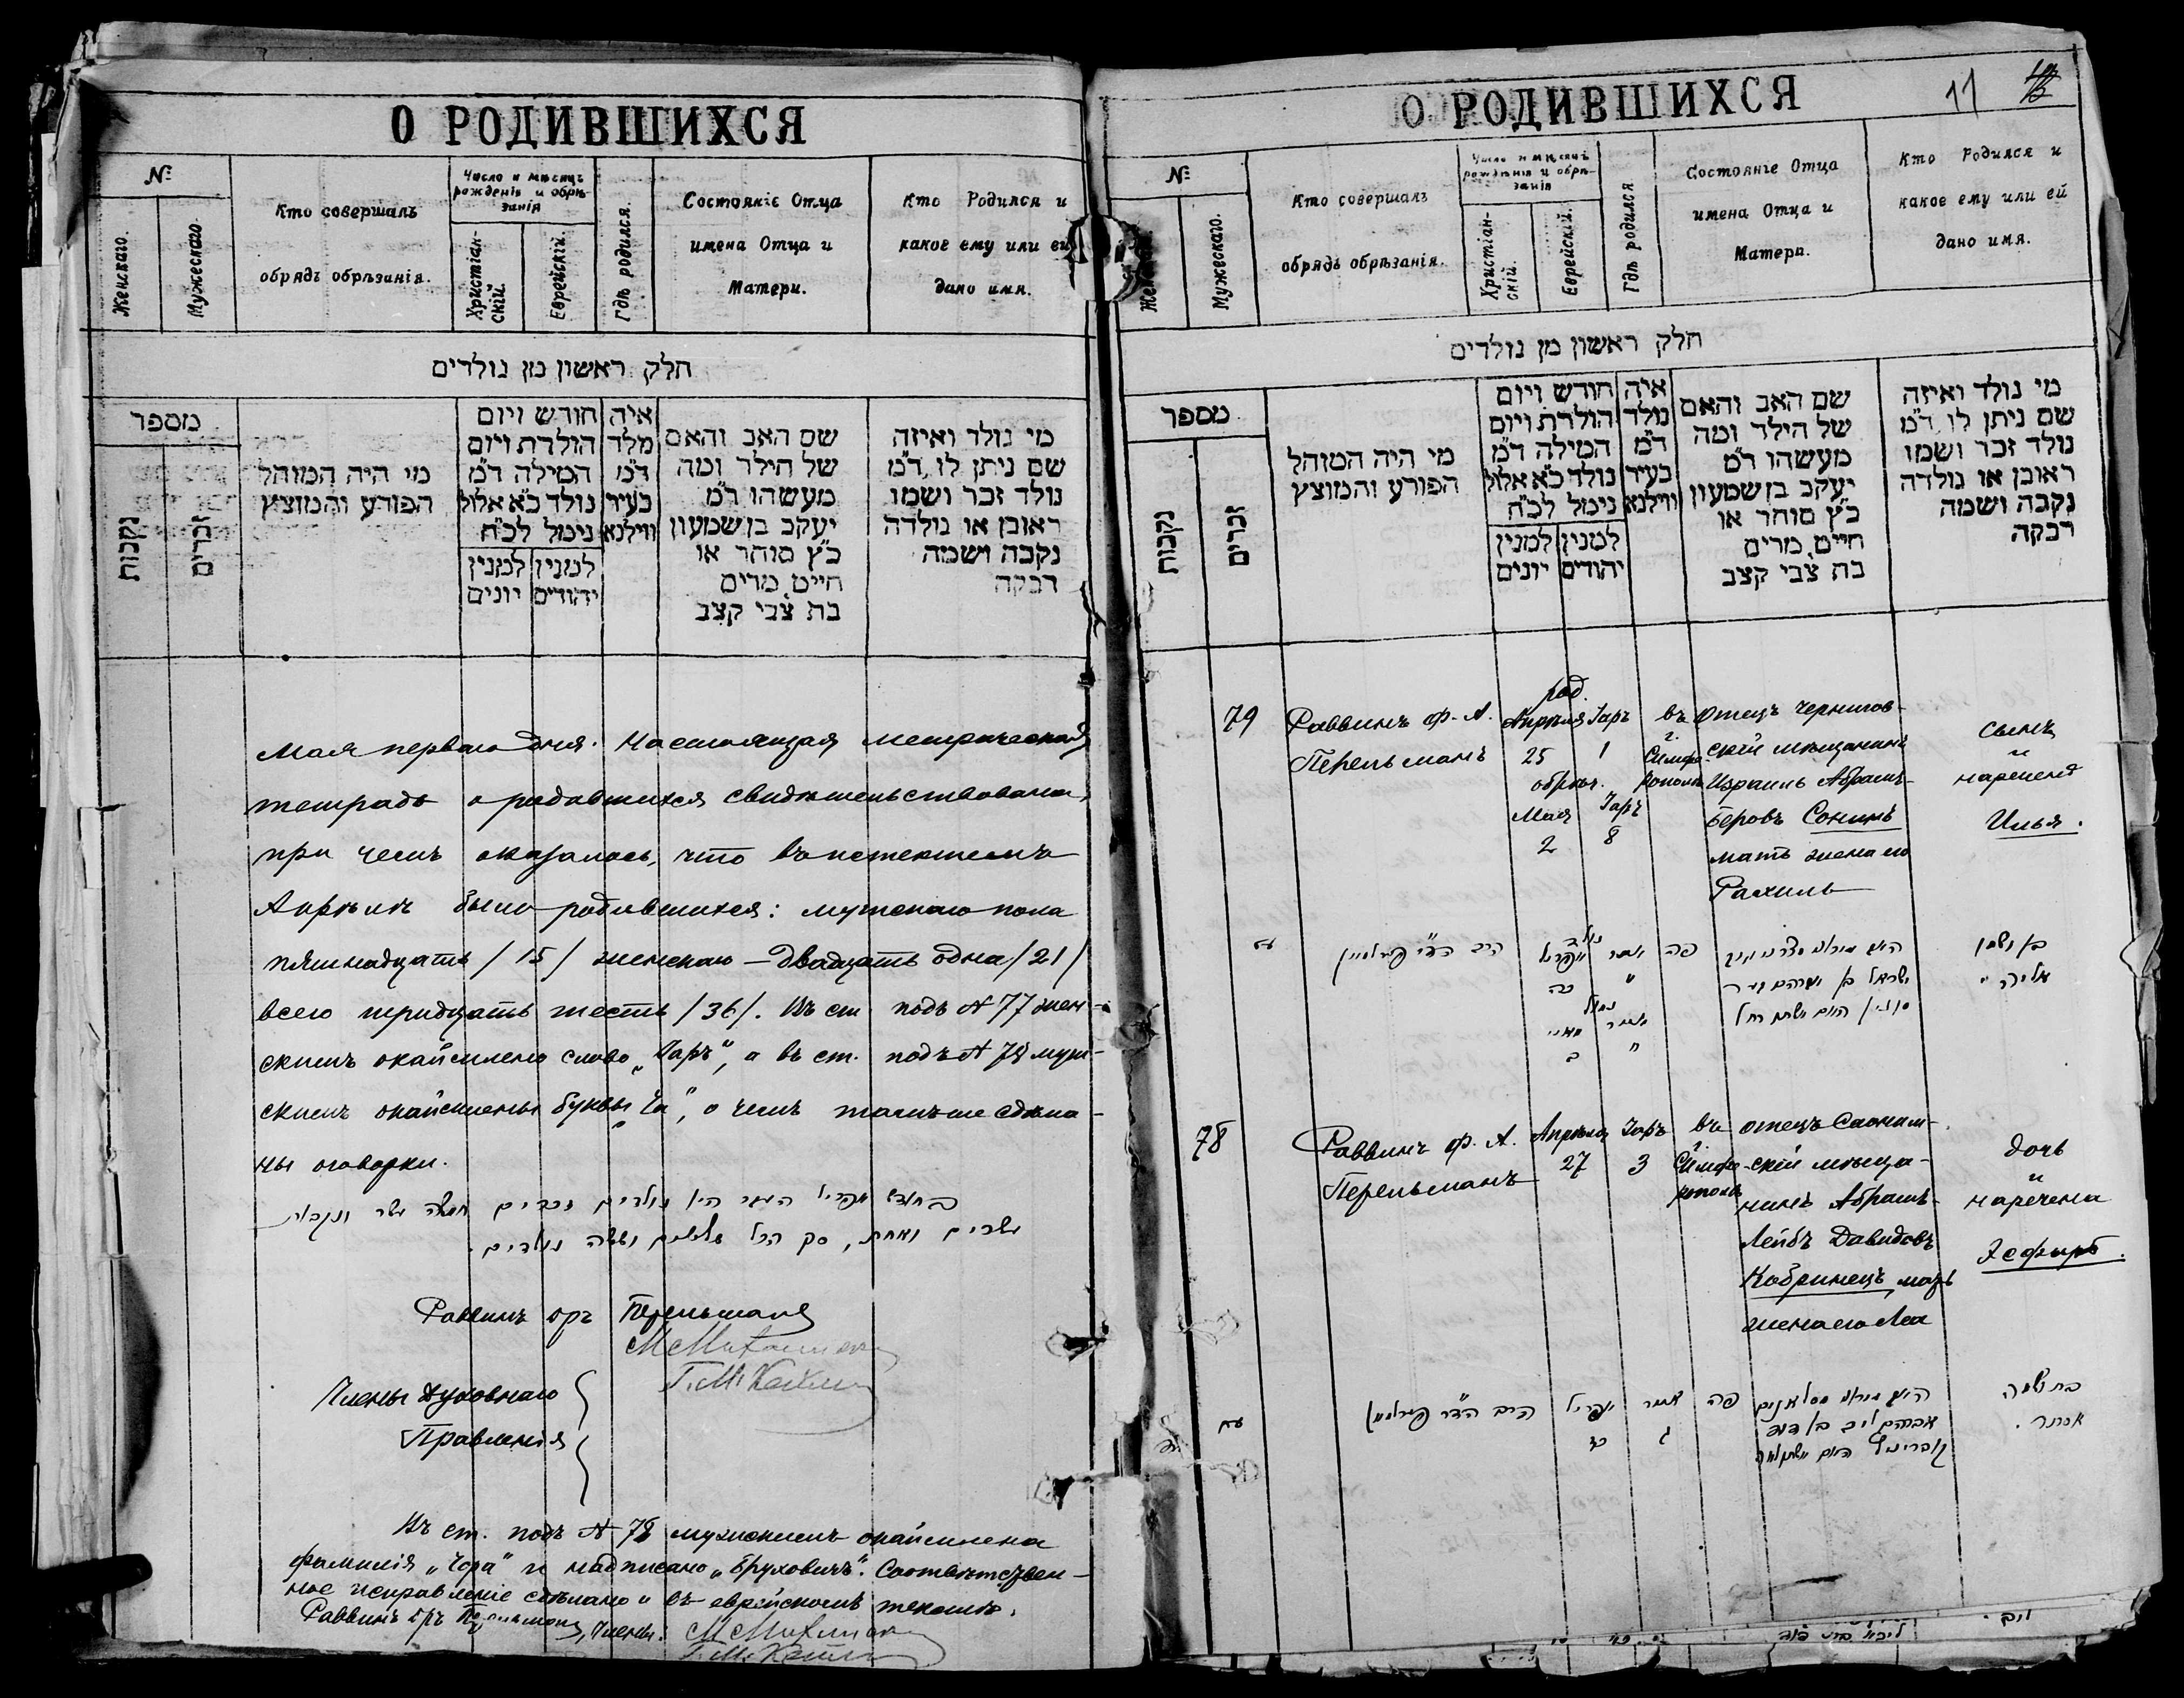 О РОДИВШИХСЯ
№
Женскаго.
Мужескаго.
Кто совершалъ
обрядъ обрѣзанія.
Число и мѣсяцъ
рожденія и обрѣ-
занія
Христіан-
скій.
Еврейскій.
Гдѣ родился.
Состояніе Отца
имена Отца и
Матери.
Кто Родился и
какое ему или ей
дано имя.
חלק ראשון מן נולדים
מספר
נקבות
זכרים
מי היה המוהל
הפורע והמוצץ
חודש ויום
הולדת ויום
המילה ד״מ
נולד כ״א אלול
נימל לכ״ח
למנין יהודים
למנין יונים
איה
מלד
ד״מ
בעיר
ווילנא
שם האב והאם
של הילד ומה
מעשהו ד״מ
יעקב בן שמעון
כ״ץ סוחר או
חייט מרים
בת צבי קצב
מי נולד ואיזה
שם ניתן לו ד״מ
נולד זכר ושמו
ראובן או נולדה
נקבה ושמה
רבקה
Мая перваго дня. Настоящая метрическая
тетрадь о родившихся свидѣтельствована,
при чемъ оказалось, что въ истекшемъ
Апрѣлѣ было родившихся: мужскаго пола
пятнадцать /15/ женскаго — двадцать одна /21/
всего тридцать шесть /36/. Въ ст. подъ № 77 жен-
скимъ окаймлено слово „Іаръ", а въ ст. подъ № 78 муж-
скимъ окаймлены буквы „Ча", о чемъ тамъ же сдѣла-
ны оговорки.
בחודש אפריל העבר היו נולדים זכרים חמשה עשר ונקבות
עשרים ואחת, סך הכל שלשים וששה נולדים.
Раввинъ др Перельманъ
Члены Духовнаго
Правленія
Въ ст. подъ № 78 мужскимъ окаймлена
фамилія „Чора" и надписано „Бруховичъ". Соотвѣтствен-
ное исправленіе сдѣлано и въ еврейскомъ текстѣ.
Раввинъ др Перельманъ, Члены:
О РОДИВШИХСЯ
11
№
Мужескаго.
Кто совершалъ
обрядъ обрѣзанія.
Число и мѣсяцъ
рожденія и обрѣ-
занія
Христіан-
скій.
Еврейскій.
Гдѣ родился
Состоянiе Отца
имена Отца и
Матери.
Кто Родился и
какое ему или ей
дано имя.
חלק ראשון מן נולדים
מספר
נקבות
זכרים
מי היה המוהל
הפורע והמוצץ
חודש ויום
הולדת ויום
המילה ד״מ
נולד כ״א אלול
נימל לכ״ח
למנין יהודים
למנין יונים
איה
נולד
ד״מ
בעיר
ווילנא
שם האב והאם
של הילד ומה
מעשהו ד״מ
יעקב בן שמעון
כ״ץ סוחר או
חייט מרים
בת צבי קצב
מי נולד ואיזה
שם ניתן לו ד״מ
נולד זכר ושמו
ראובן או נולדה
נקבה ושמה
רבקה
79
Раввинъ Ф. А.
Перельманъ
род.
Апрѣля Іаръ
25 1
обрѣз.
Мая Іаръ
2 8
въ
г.
Симфе-
рополѣ
Отецъ Чернигов-
скій мѣщанинъ
Израиль Абрамъ-
Беровъ Сонинъ
мать жена его
Рахиль
сынъ
и
нареченъ
Илья.
הרב פערלמאן
פה
78
Раввинъ Ф. А.
Перельманъ
Апрѣля Іаръ
27 3
въ
г.
Симфе-
рополѣ
отецъ Слоним-
скій мѣща-
нинъ Абрамъ-
Лейбъ Давидовъ
Кобринецъ, мать
жена его Лея
дочь
и
наречена
Эсфирь.
עח
הרב פערלמאן
אפריל
אייר
ג
פה
אברהם ליב בן דוד
אסתר.